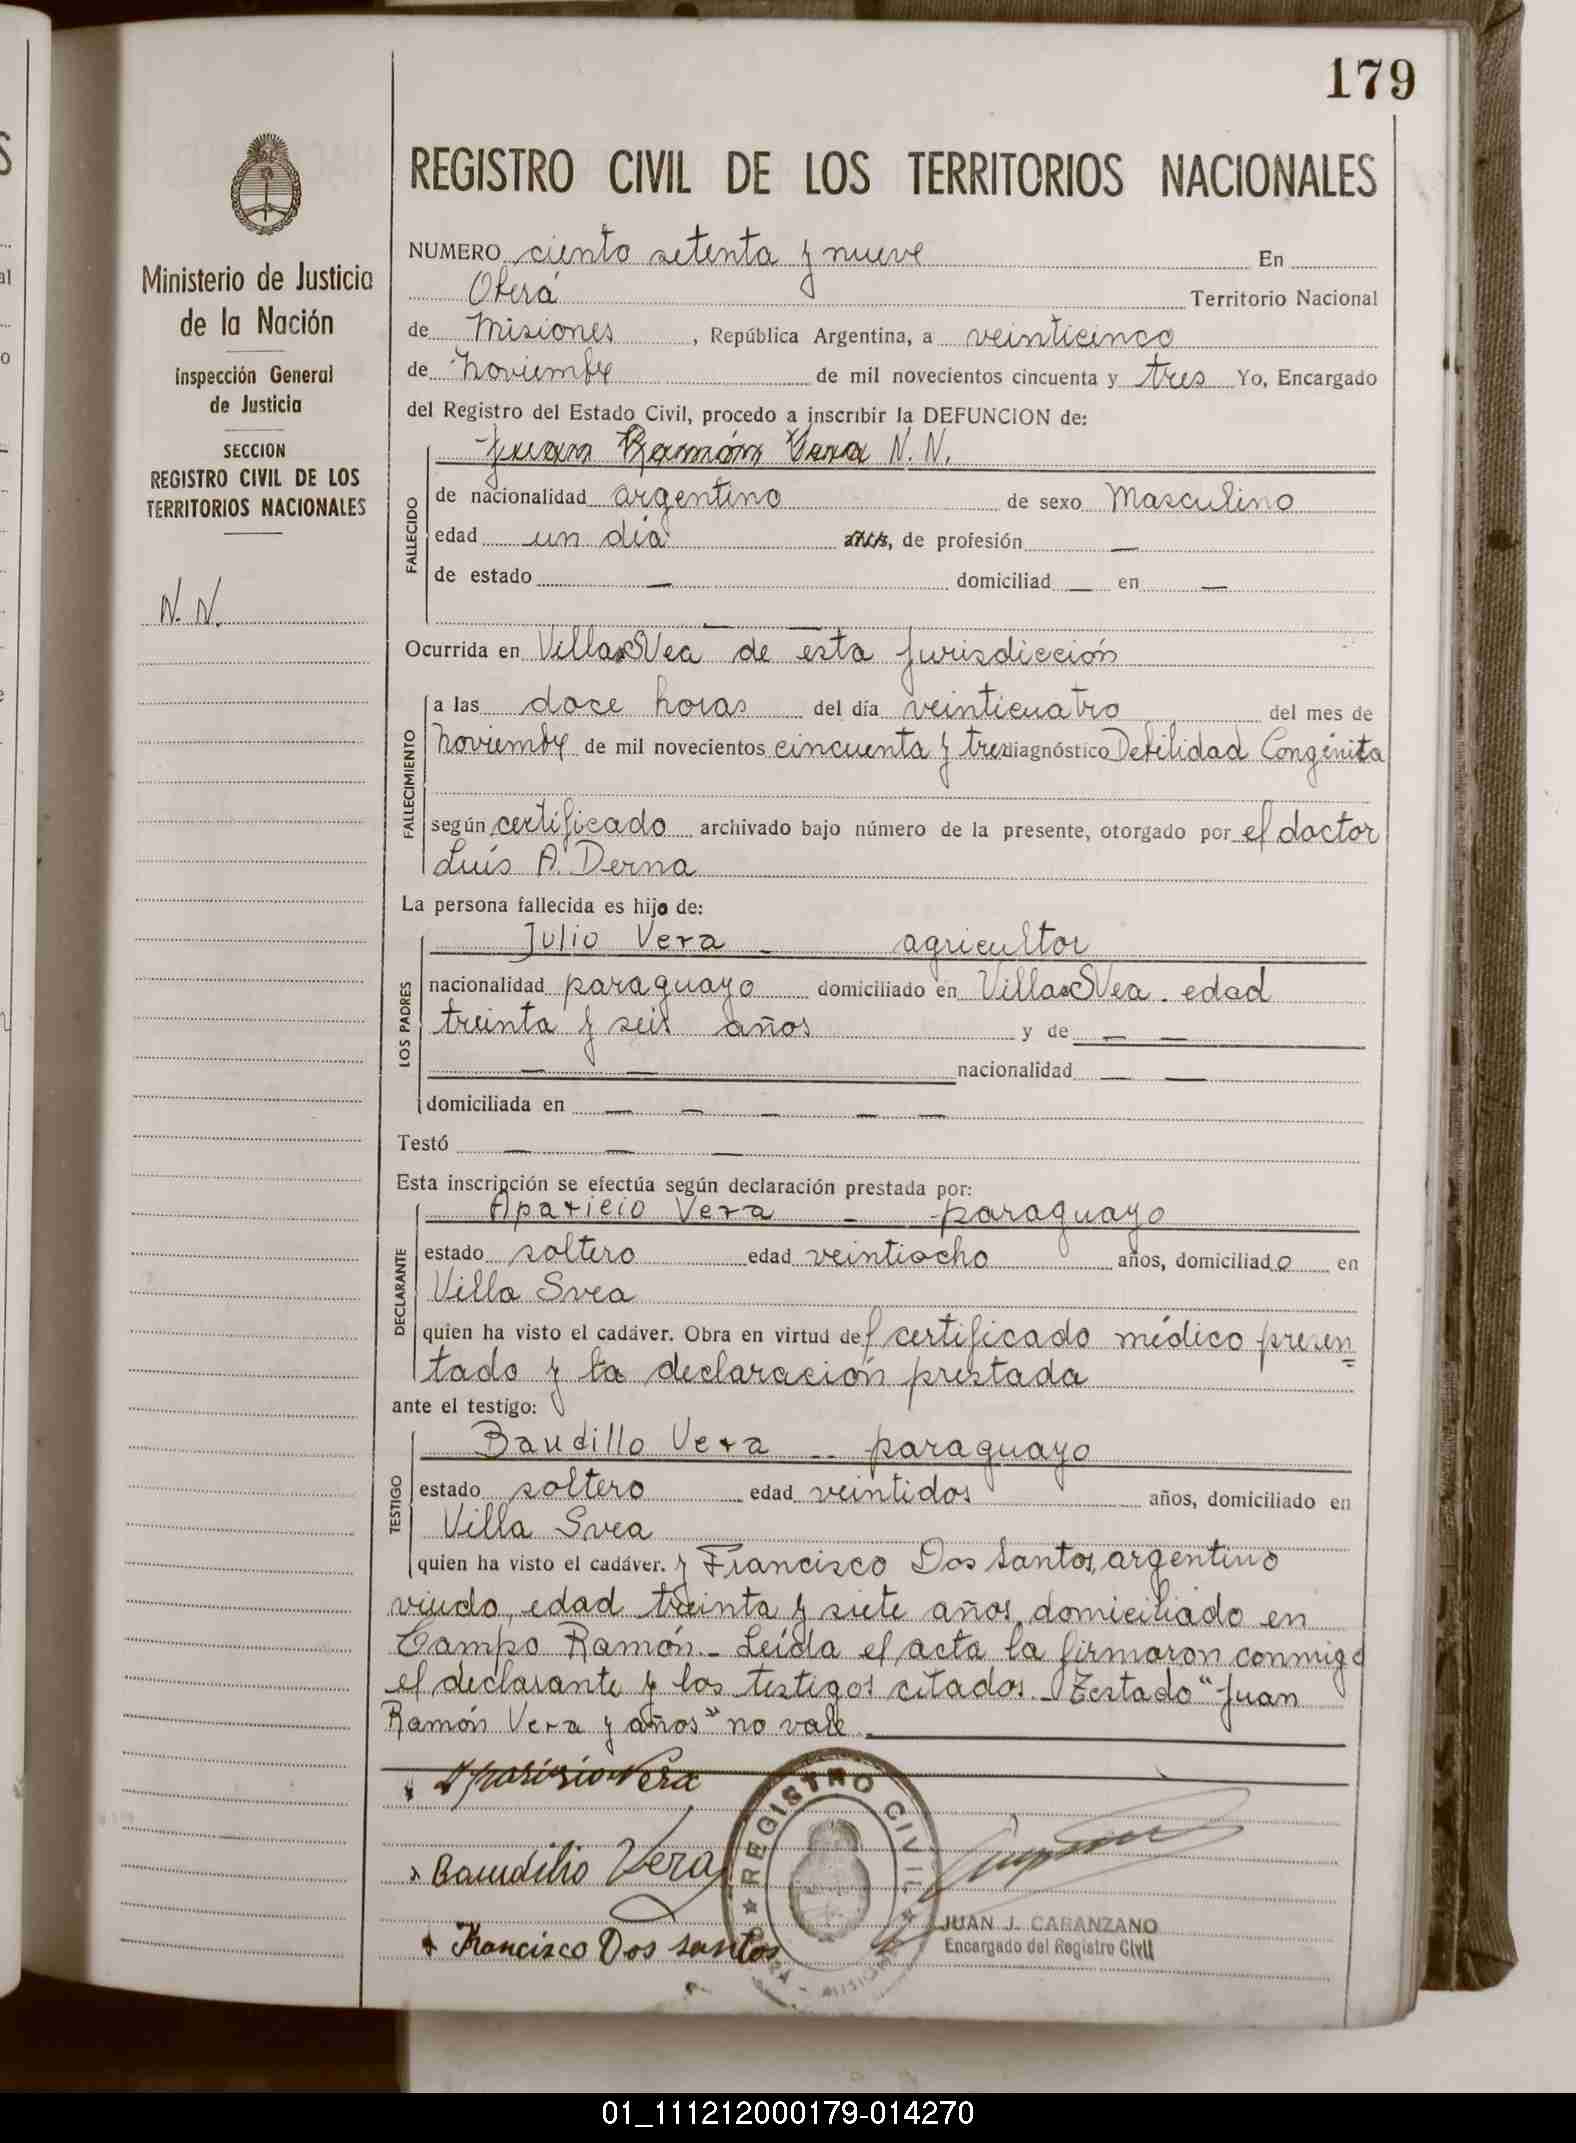 179
REGISTRO CIVIL DE LOS TERRITORIOS NACIONALES
Ministerio de Justicia
de la Nación
Inspección General
de Justicia
SECCION
REGISTRO CIVIL DE LOS
TERRITORIOS NACIONALES
N. N.
NUMERO ciento setenta y nueve En
Oberá Territorio Nacional
de Misiones, República Argentina, a veinticinco
de Noviembre de mil novecientos cincuenta y tres Yo, Encargado
del Registro del Estado Civil, procedo a inscribir la DEFUNCION de:
Juan Ramón Vera N. N.
FALLECIDO
de nacionalidad argentino de sexo Masculino
edad un día años, de profesión —
de estado — domiciliad — en —
— —
Ocurrida en Villa Svea de esta Jurisdicción
FALLECIMIENTO
a las doce horas del día veinticuatro del mes de
Noviembre de mil novecientos cincuenta y tres diagnóstico Debilidad Congénita
según certificado archivado bajo número de la presente, otorgado por el doctor
Luís A. Derna
La persona fallecida es hijo de:
LOS PADRES
Julio Vera - agricultor
nacionalidad paraguayo domiciliado en Villa Svea. edad
treinta y seis años y de — —
— — nacionalidad — —
domiciliada en — — — — —
Testó — — —
Esta inscripción se efectúa según declaración prestada por:
DECLARANTE
Aparicio Vera - paraguayo
estado soltero edad veintiocho años, domiciliado en
Villa Svea
quien ha visto el cadáver. Obra en virtud del certificado médico presen=
tado y la declaración prestada
ante el testigo:
TESTIGO
Baudillo Vera -- paraguayo
estado soltero edad veintidos años, domiciliado en
Villa Svea
quien ha visto el cadáver. y Francisco Dos Santos, argentino
viudo, edad treinta y siete años, domiciliado en
Campo Ramón.- Leída el acta la firmaron conmigo
el declarante y los testigos citados.- Testado "Juan
Ramón Vera y años" no vale
Aparisio Vera
Baudilio Vera
Francisco Dos santos
REGISTRO CIVIL
JUAN J. CARANZANO
Encargado del Registro Civil
01_111212000179-014270